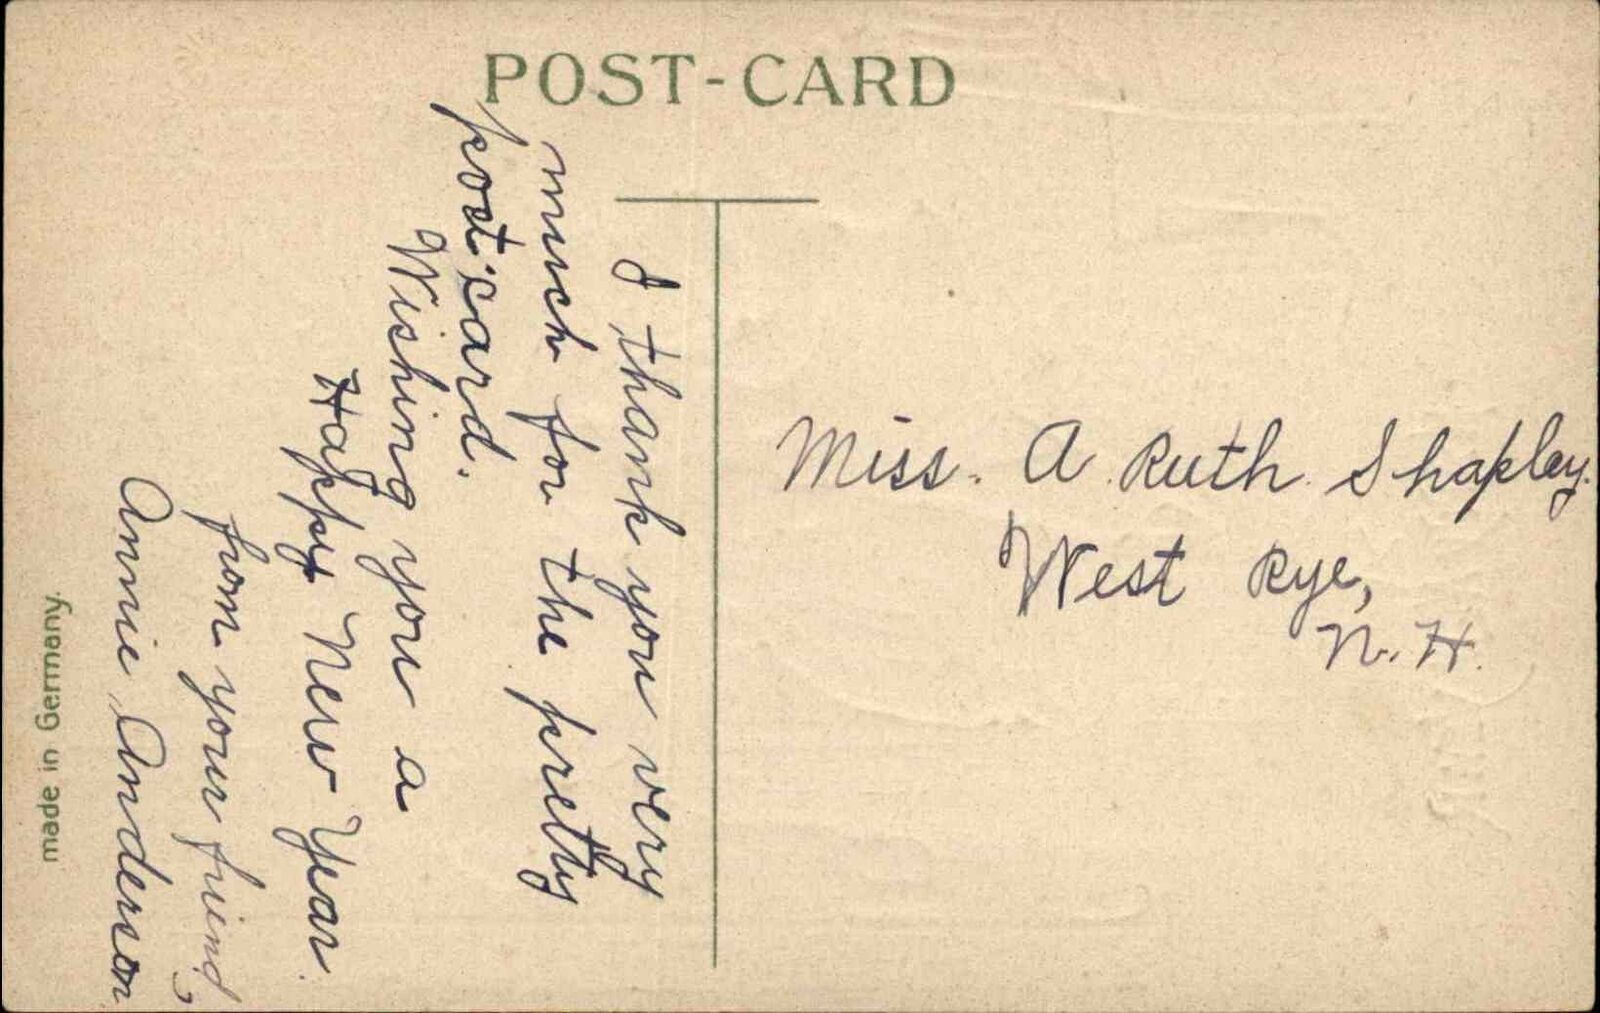 POST-CARD
I thank you very
much for the pretty
post card.
Wishing you a
Happy New Year.
from your friend,
Annie Anderson
Miss. A. Ruth. Shapley.
West Rye,
N. H.
made in Germany.